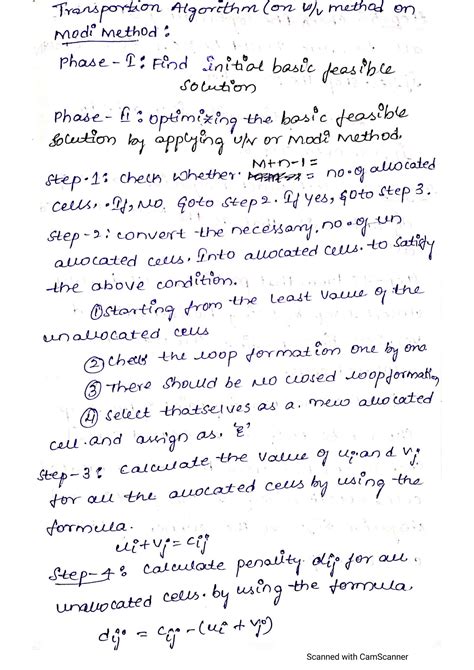 Transportion Algorithm (on U/V method on
Modi Method :
Phase - I : Find initial basic feasible
Solution
Phase - II : optimizing the basic feasible
Solution by applying U/V or Modi Method.
Step-1 : check whether M+n-1 = no. of allocated
cells, . If, No. Goto step 2. If yes, Goto Step 3.
Step-2 : convert the necessary, no. of un
allocated cells. Into allocated cells. to Satisfy
the above condition.
① Starting from the Least Value of the
unallocated cells
② Check the loop formation one by one
③ There should be No closed loop formation
④ Select thatselves as a new allocated
cell. and assign as, 'ε'
Step-3 : calculate, the Value of ui and Vj
for all the allocated cells by using the
formula.
ui + Vj = cij
Step-4 : Calculate penality dij for all.
unallocated cells. by using the formula,
dij = cij - (ui + Vj)
Scanned with CamScanner